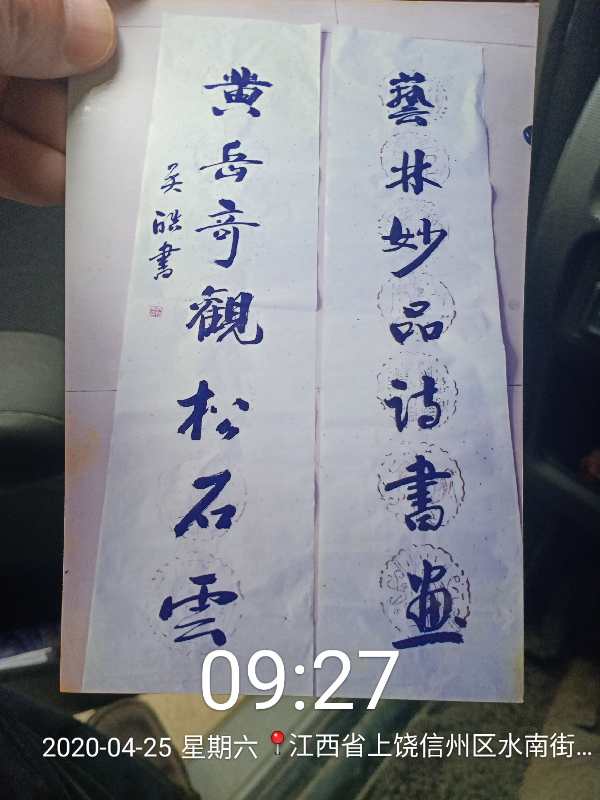 藝林妙品詩書畫
黄岳奇觀松石雲
吴皓書
09:27
2020-04-25 星期六 📍江西省上饶信州区水南街...